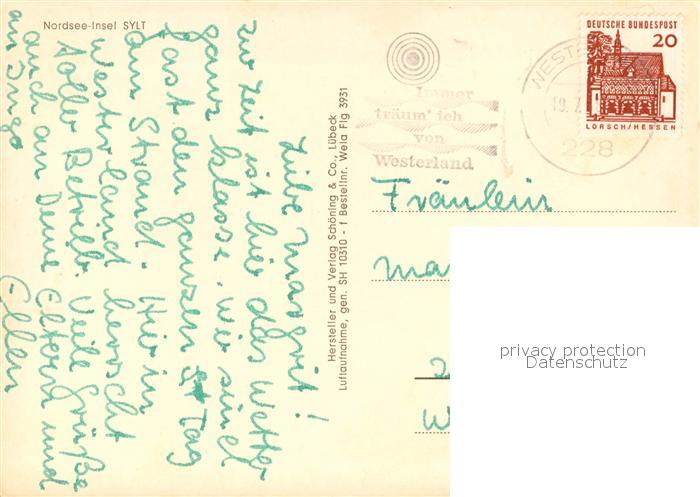 Nordsee-Insel SYLT
Liebe Margrit!
zur Zeit ist hier das Wetter
ganz klasse. Wir sind
fast den ganzen Tag
am Strand. Hier in
Westerland herrscht
toller Betrieb. Viele Grüße
auch an Deine Eltern und
an Inge
Ellen
Hersteller und Verlag Schöning & Co., Lübeck
Luftaufnahme, gen. SH 10310 - f Bestellnr. Wela Flg 3931
Immer
träum' ich
von
Westerland
228
DEUTSCHE BUNDESPOST
20
LORSCH/HESSEN
Fräulein
privacy protection
Datenschutz